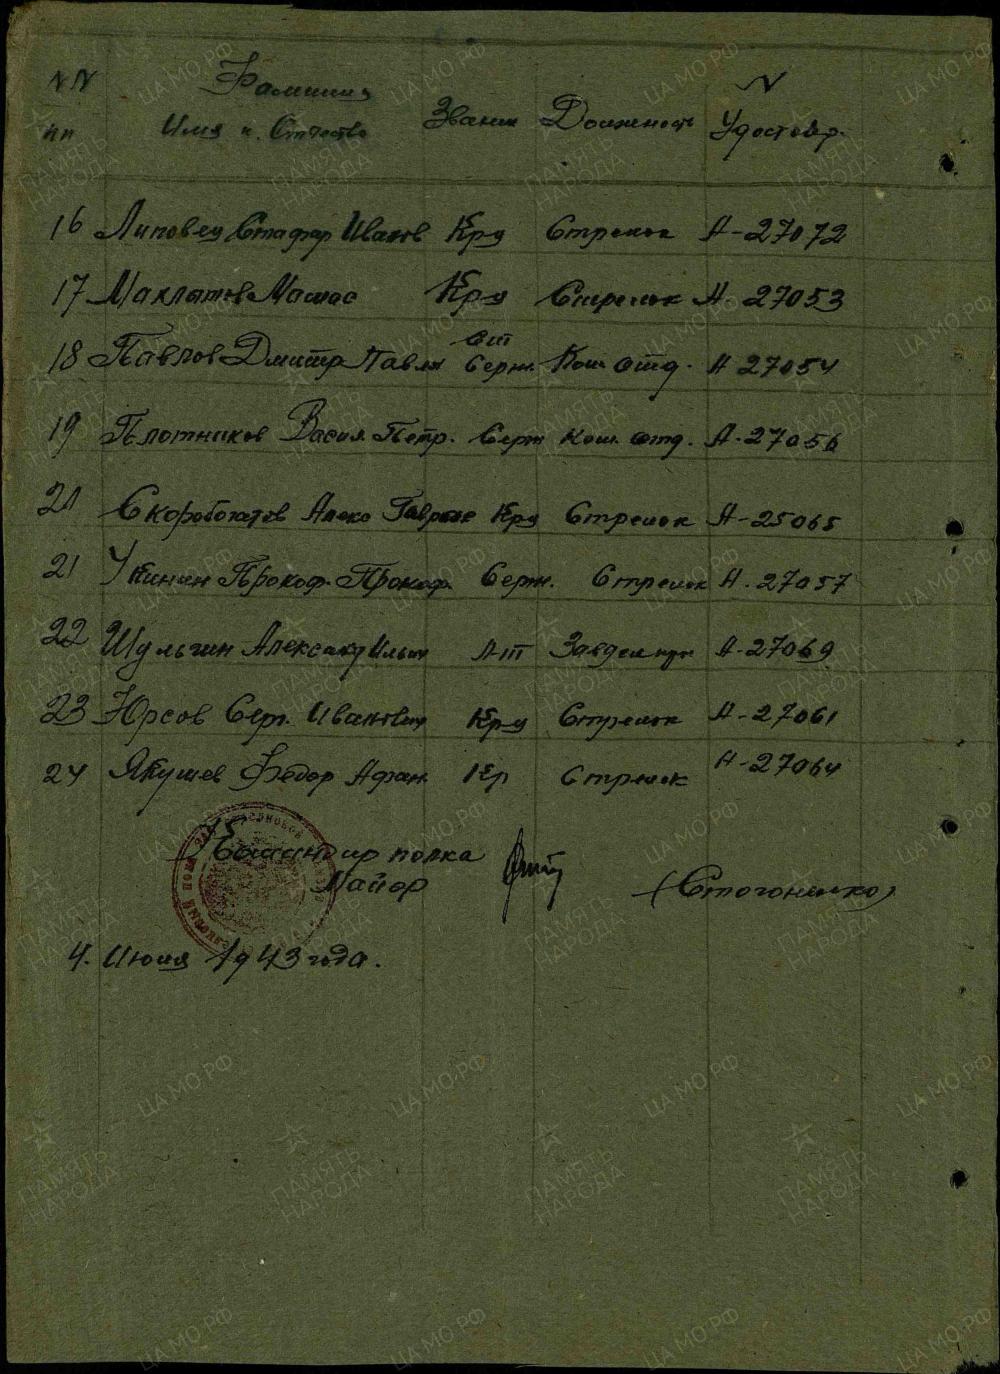 NN Фамилия N
пп Имя и. Отчество Звание Должность Удостовр.
16 Липовец Стафар Иванов Кр-ц Стрелок А-27072
17 Махлятов Кр-ц Стрелок А. 27053
ст
18 Павлов Дмитр Павл Серж. Ком. отд. А 27054
19 Плотников Васил. Петр. Серж Ком. отд. А-27056
20 Скоробогатов Алекс Кр-ц Стрелок А-25065
21 Прокоф. Прокоф. Серж. Стрелок А. 27057
22 Шульгин Александ Ильич Л-т А-27069
23 Юрсов Серг. Иванович Кр-ц Стрелок А-27061
24 Якушев Федор Афан. Кр Стрелок А-27064
Командир полка
Майор (Стогониенко)
4. Июня 1943 года.
ЦА МО.РФ
ПАМЯТЬ
НАРОДА